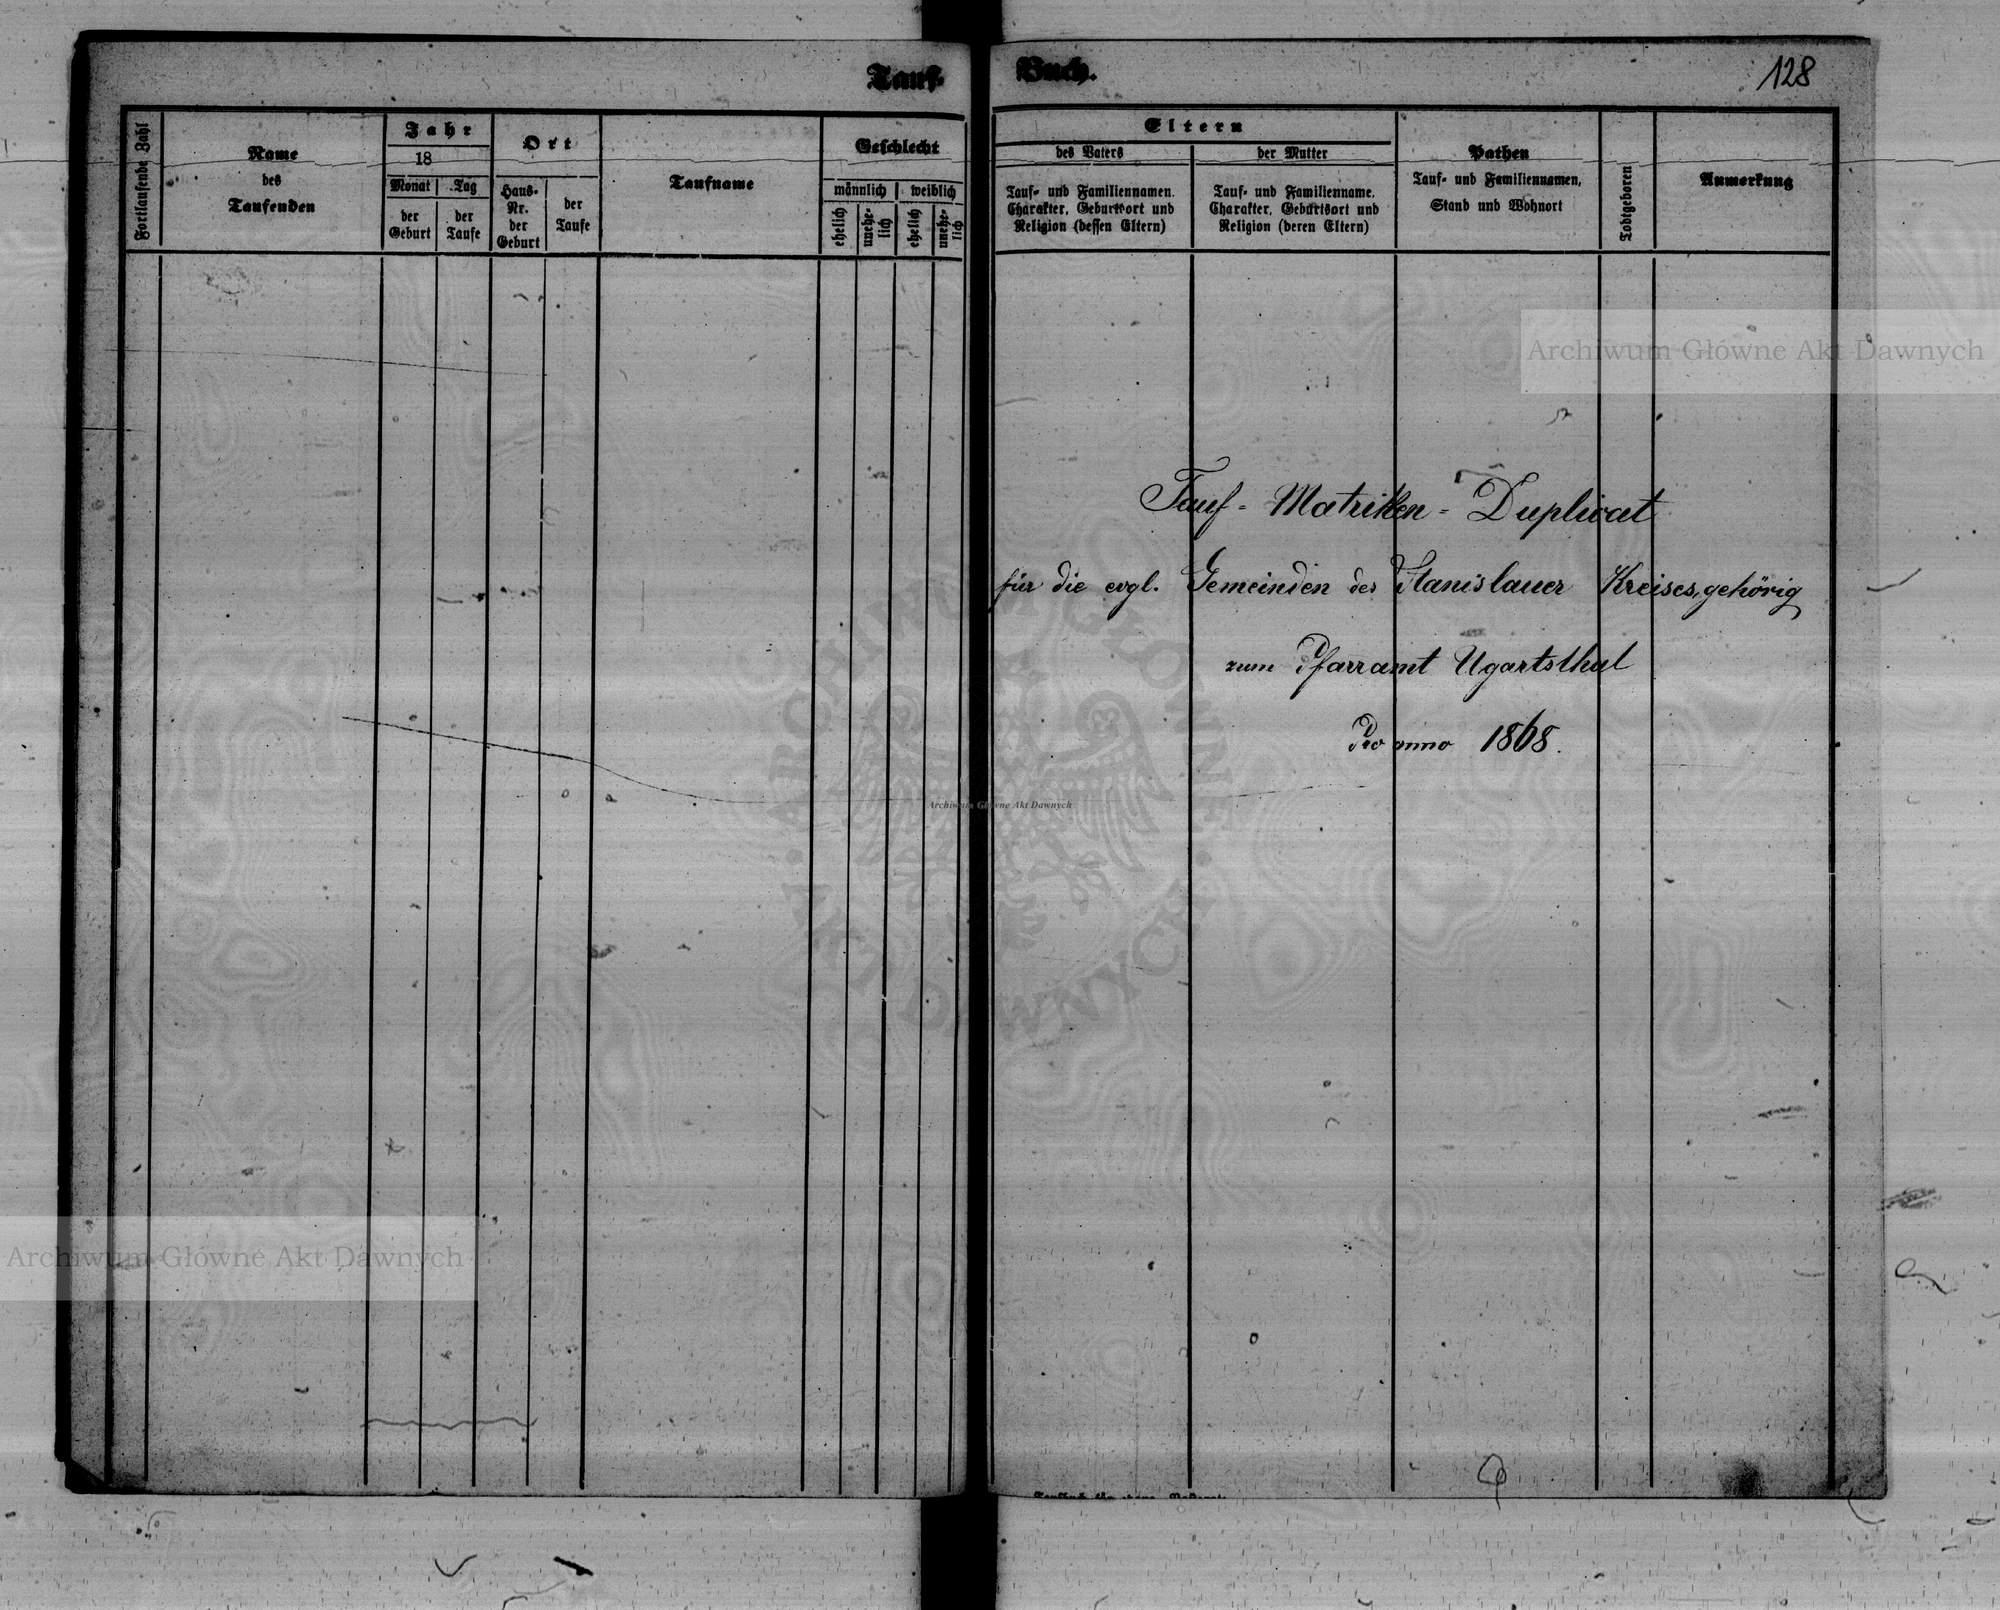 Tauf-
Buch.
128
Fortlaufende Zahl
Name
des
Taufenden
Jahr
18
Monat
Tag
der
Geburt
der
Taufe
Ort
Haus-
Nr.
der
Geburt
der
Taufe
Taufname
Geschlecht
männlich
weiblich
ehelich
unehe-
lich
ehelich
unehe-
lich
Eltern
des Vaters
Tauf- und Familiennamen.
Charakter, Geburtsort und
Religion (dessen Eltern)
der Mutter
Tauf- und Familienname.
Charakter, Geburtsort und
Religion (deren Eltern)
Pathen
Tauf- und Familiennamen,
Stand und Wohnort
Todtgeboren
Anmerkung
Archiwum Główne Akt Dawnych
Tauf - Matriken - Duplicat
für die evgl. Gemeinden des Stanislauer Kreises, gehörig
zum Pfarramt Ugartsthal
Pro anno 1868.
ARCHIWUM GŁÓWNE
AKT DAWNYCH
Archiwum Główne Akt Dawnych
Archiwum Główne Akt Dawnych